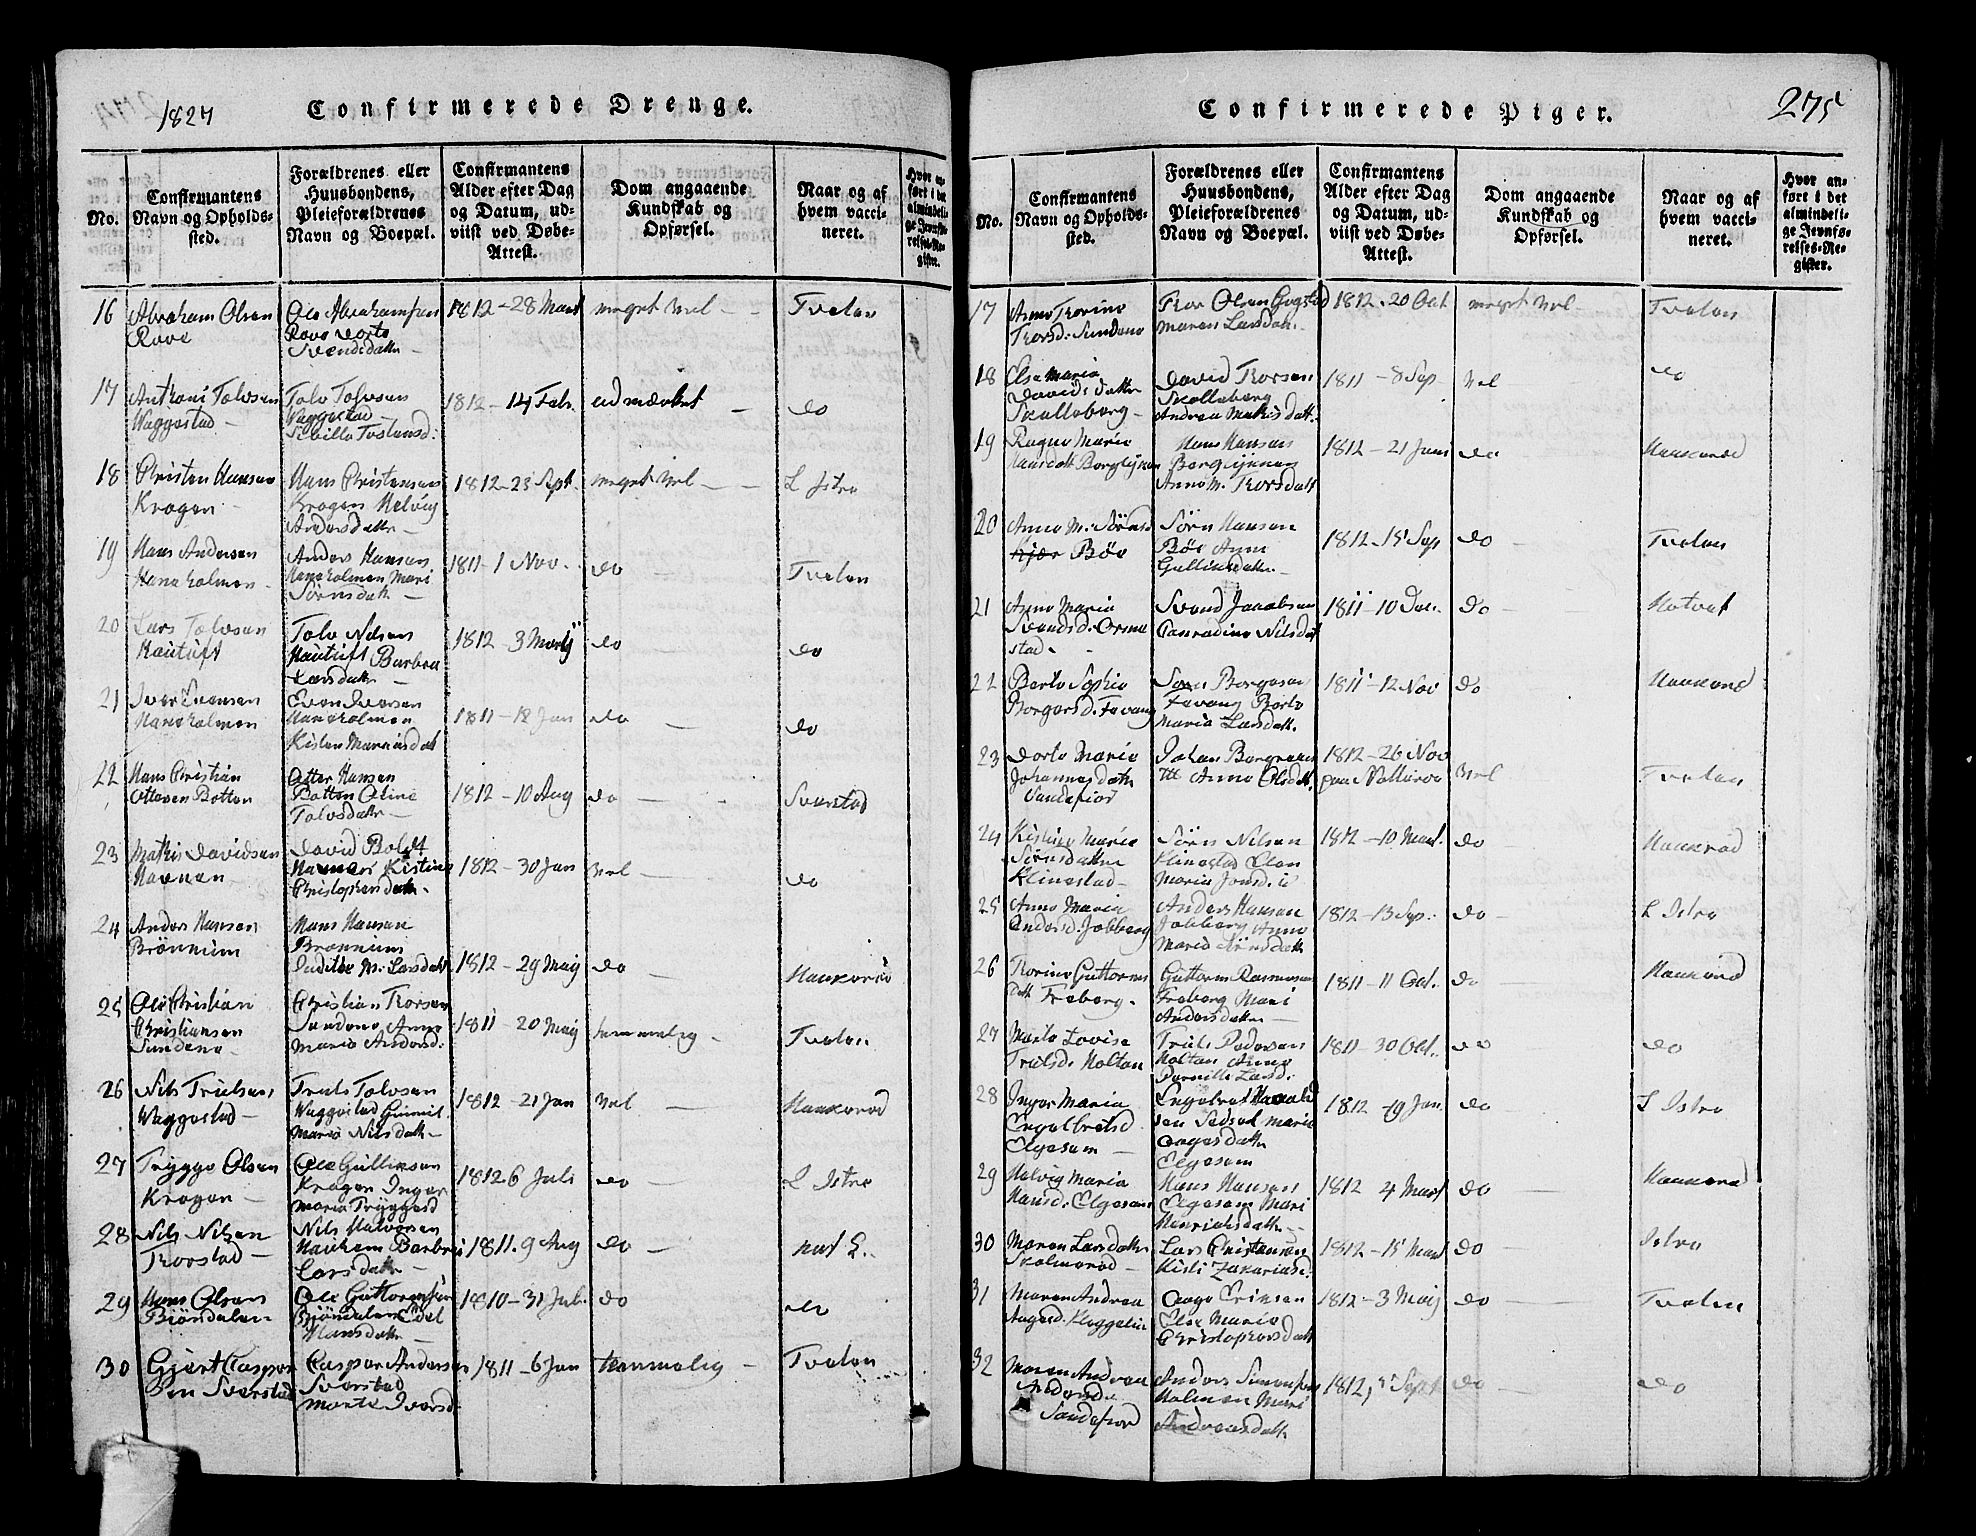 1827
Confirmerede Drenge.
No.
Confirmantens
Navn og Opholds-
sted.
Forældrenes eller
Huusbondens,
Pleieforældrenes
Navn og Boepæl.
Confirmantens
Alder efter Dag
og Datum, ud-
viist ved Døbe-
Attest.
Dom angaaende
Kundskab og
Opførsel.
Naar og af
hvem vacci-
neret.
Hvor an-
ført i det
almindeli-
ge Jevnfø-
relses-Re-
gister.
16
Abraham Olsen
Rove
Ole Abrahamsen
Rove Dorte
Svendsdatter
1812 - 28 Mart
meget vel
Tveten
17
Anthoni Tolvsen
Waggestad
Tolv Tolvsen
Waggestad
1812 - 14 Febr.
udmærket
do
18
Christen Hansen
Krogen
Hans Christensen
Krogen Helvig
Andersdatter
1812 - 23 Sept.
meget vel
L Istre
19
Hans Andersen
Haneholmen
Anders Hansen
Haneholmen Mari
Sørnsdatter
1811 - 1 Nov.
do
Tveten
20
Lars Tolvsen
Hautuft
Tolv Nilsen
Hautuft Barbra
Larsdatter
1812 - 3 Martj
do
do
21
Iver Evensen
Haneholmen
Even Iversen
Haneholmen
1811 - 18 Jan
do
do
22
Hans Christian
Ottersen Botten
Otter Hansen
Botten Oline
Tolvsdatter
1812 - 10 Aug
do
Sverstad
23
Mathis Davidsen
David Boldt
Kistine
Christophersdatter
1812 - 30 Jan
vel
do
24
Anders Hansen
Brønnum
Hans Hansen
Brønnum
Judithe M. Larsdatt
1812 - 29 Maij
do
Haukerød
25
Ole Christian
Christiansen
Sundene
Christian Thorsen
Sundene Anne
Marie Andersd:
1811 - 20 Maij
temmelig
Tveten
26
Nils Trulsen
Waggestad
Truls Tolvsen
Waggestad
Marie Nilsdatter
1812 - 21 Jan
vel
Haukerød
27
Trygge Olsen
Krogen
Ole Gulliksen
Krogen Inger
Marie Tryggesd
1812 6 Juli
do
L Istre
28
Nils Nilsen
Thorstad
Nils Halvorsen
Barbra
Larsdatter
1811. 9 Aug
do
29
Hans Olsen
Bjøndalen
Ole Guttormsen
Bjøndalen Edel
Hansdatter
1810 - 31 Jul.
do
do
30
Gjert Casper
sen Sverstad
Casper Andersen
Sverstad
Marte Iversd.
1811 - 6 Jan
temmelig
Tveten
Confirmerede Piger.
275
No.
Confirmantens
Navn og Opholds-
sted.
Forældrenes eller
Huusbondens,
Pleieforældrenes
Navn og Boepæl.
Confirmantens
Alder efter Dag
og Datum, ud-
viist ved Døbe-
Attest.
Dom angaaende
Kundskab og
Opførsel.
Naar og af
hvem vacci-
neret.
Hvor an-
ført i det
almindeli-
ge Jevnfø-
relses-Re-
gister.
17
Anne Thorine
Thorsd: Sundene
Thor Olsen Gogstad
Maren Larsdatt.
1812 - 20 Oct
meget vel
Tveten
18
Else Maria
Davidsdatter
Skalleberg
David Thorsen
Skalleberg
Andrea Mathisdatt.
1811 - 8 Sep
vel
do
19
Ragne Marie
Hansdatt
Hans Hansen
Anne M. Thorsdatt
1812 - 21 Juni
do
Haukerød
20
Anne M: Sørnsd
Bøe
Sørn Hansen
Bøe Anne
Gulliksdatter
1812 - 15 Sep
do
Tveten
21
Anne Maria
Svendsd. Orme
stad
Svend Jacobsen
Conradine Nilsdat
1811 - 10 Dec.
do
22
Berte Sophie
Borgersd. Fevang
Fevang Berte
Maria Larsdatt.
1811 - 12 Nov
do
Haukerød
23
Dorte Marie
Johannesdatter
Sandefior
Anne Olsdatt
1812 - 26 Nov
vel
Tveten
24
Kistine Marie
Sørnsdatter
Klinestad
Sørn Nilsen
Klinestad Elen
Maria Jonsd.
1812 - 10 Mart.
do
Haukerød
25
Anne Maria
Andersd. Jobberg
Anders Hansen
Jobberg Anne
Marie Sørnsdatt
1812 - 13 Sep.
do
L Istre
26
Thorine Guttorms
datt Freberg
Guttorm Rasmussen
Freberg Mari
Andersdatter
1811 - 11 Oct.
do
Haukerød
27
Marte Lovise
Trulsd. Holtan
Truls Pedersen
Holtan Anne
Pernille Larsd.
1811 - 30 Oct.
do
do
28
Inger Maria
Engelbretsd
Elgesem
Engelbret
Marie
Aagesdatter
Elgesem
1812 - 19 Jan
do
L Istre
29
Helvig Maria
Hansd. Elgesem
Hans Hansen
Elgesem Mari
Henrichsdatter
1812 4 Mart
do
Haukerød
30
Maren Larsdatter
Skolmerød
Lars Christensen
Kisti Zakariasd.
1812 - 15 Mart
do
Istre
31
Maren Andrea
Aage Eriksen
Else Marie
Christophersdatt
1812 - 3 Maij
do
Tveten
32
Maren Andrea
Andersd.
Sandefior
Anders Simonsen
Holmen Mari
Andreasdatt.
1812, Sept
do
do